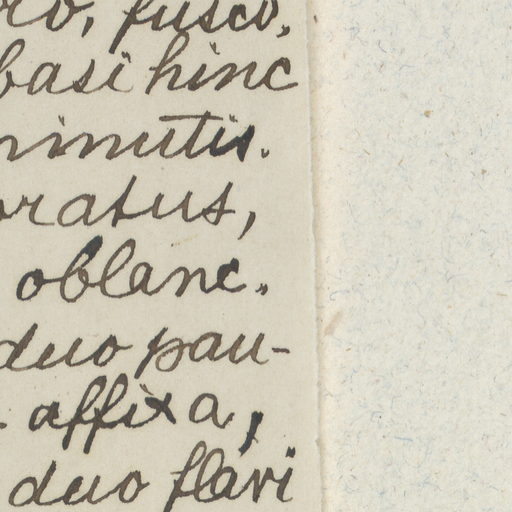 fusco,
basi hinc
minutis.
oratus,
oblanc.
duo pau-
affixa,
duo flavi